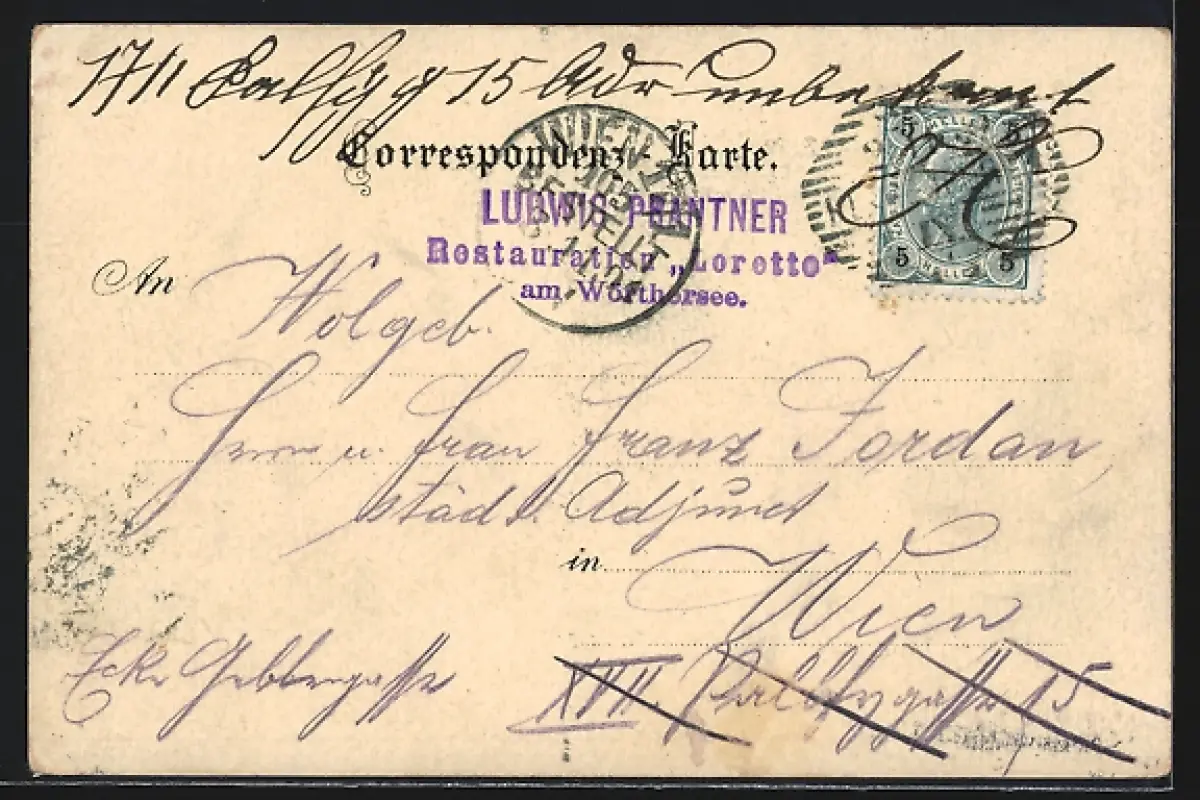 17/1 Palffyg 15 Adr unbekannt
Correspondenz-Karte.
WIEN
BESTELLT
LUDWIG PRANTNER
Restauration „Loretto“
am Wörthersee.
5 HELLER 5
5 HELLER 5
An Wolgeb.
Herr u. Frau Franz Jordan
städt. Adjunct
in Wien
Ecke Geblergasse XVII. Palffygasse 15